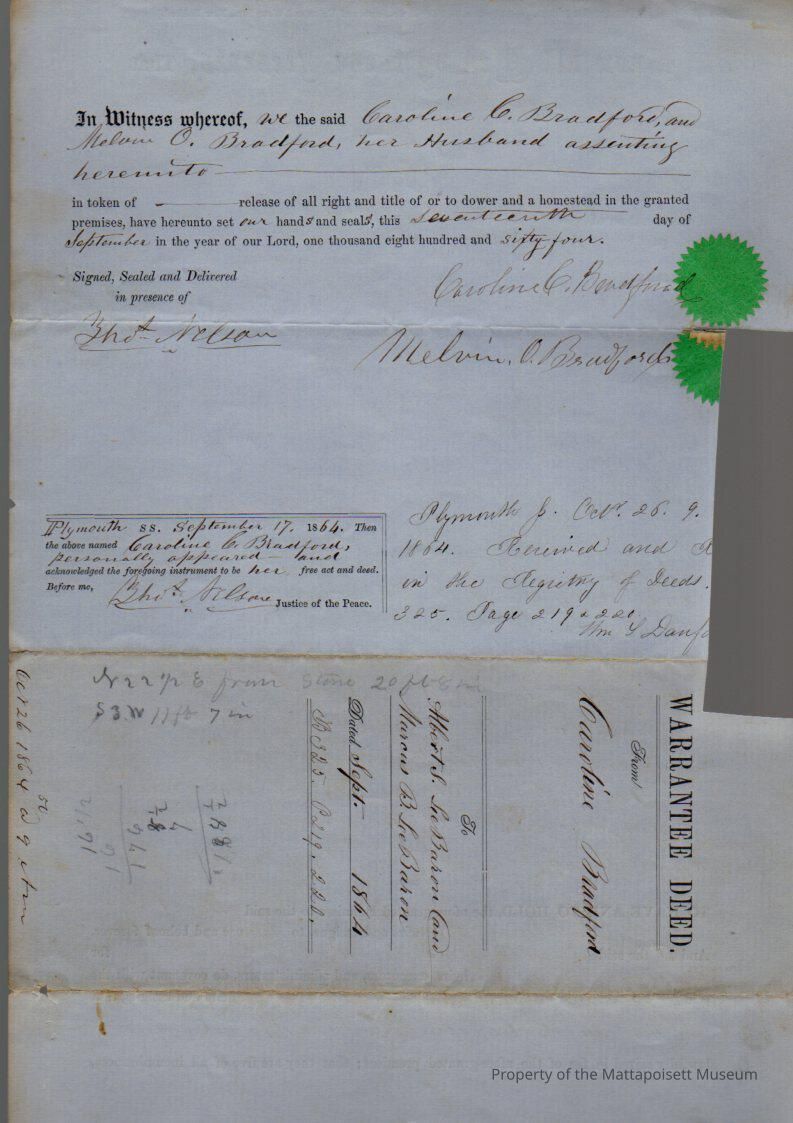 In Witness whereof, we the said Caroline C. Bradford, and
Melvin O. Bradford, her Husband assenting
hereunto
in token of release of all right and title of or to dower and a homestead in the granted
premises, have hereunto set our hands and seals, this seventeenth day of
September in the year of our Lord, one thousand eight hundred and sixty four.
Signed, Sealed and Delivered
in presence of
Caroline C. Bradford
Thos. Nelson
Melvin. O. Bradford
Plymouth ss. September 17. 1864. Then
the above named Caroline C. Bradford,
personally appeared and
acknowledged the foregoing instrument to be her free act and deed.
Before me,
Thos. Nelson Justice of the Peace.
Plymouth Oct. 26. 9.
1864. Received and
in the Registry of Deeds.
325. Page 219 & 220.
Wm S Danf
N 22 1/2 E from Stone 20 ft 8 in
S 3 W 11 ft 7 in
WARRANTEE DEED.
From
Caroline Bradford
To
Albert S. LeBaron and
Marcus B. LeBaron
Dated Sept. 1864
B 325. P 219. 220.
Oct 26 1864 9
Property of the Mattapoisett Museum